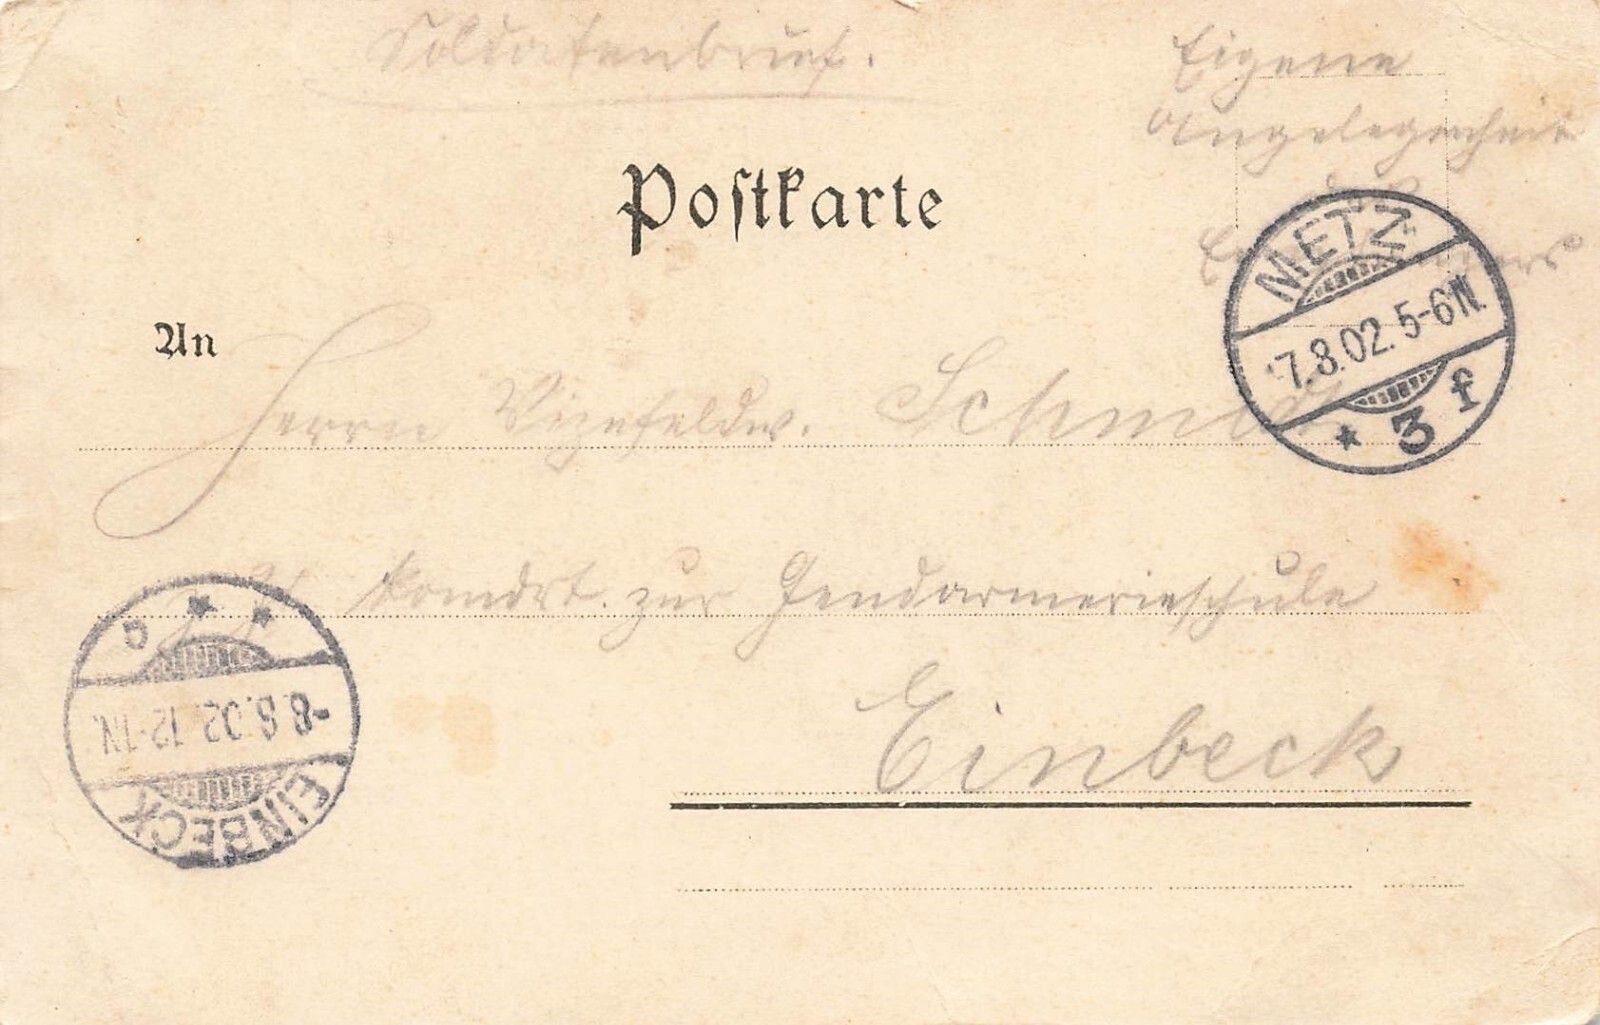 Soldatenbrief.
Eigene
Angelegenheit
des
Empfängers
Postkarte
METZ
7.8.02. 5-6N.
* 3 f
An
Herrn Vizefeldw. Schmidt
komdrt. zur Gendarmerieschule
Einbeck
-8.8.02. 12-1N.
EINBECK